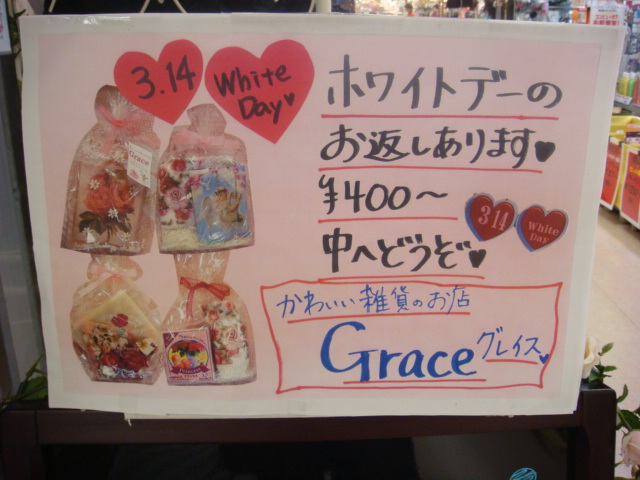 3.14
White
Day♥
ホワイトデーの
お返しあります♥
¥400〜
3 14
White
Day
中へどうぞ♥
かわいい雑貨のお店
Grace グレイス♥
Grace